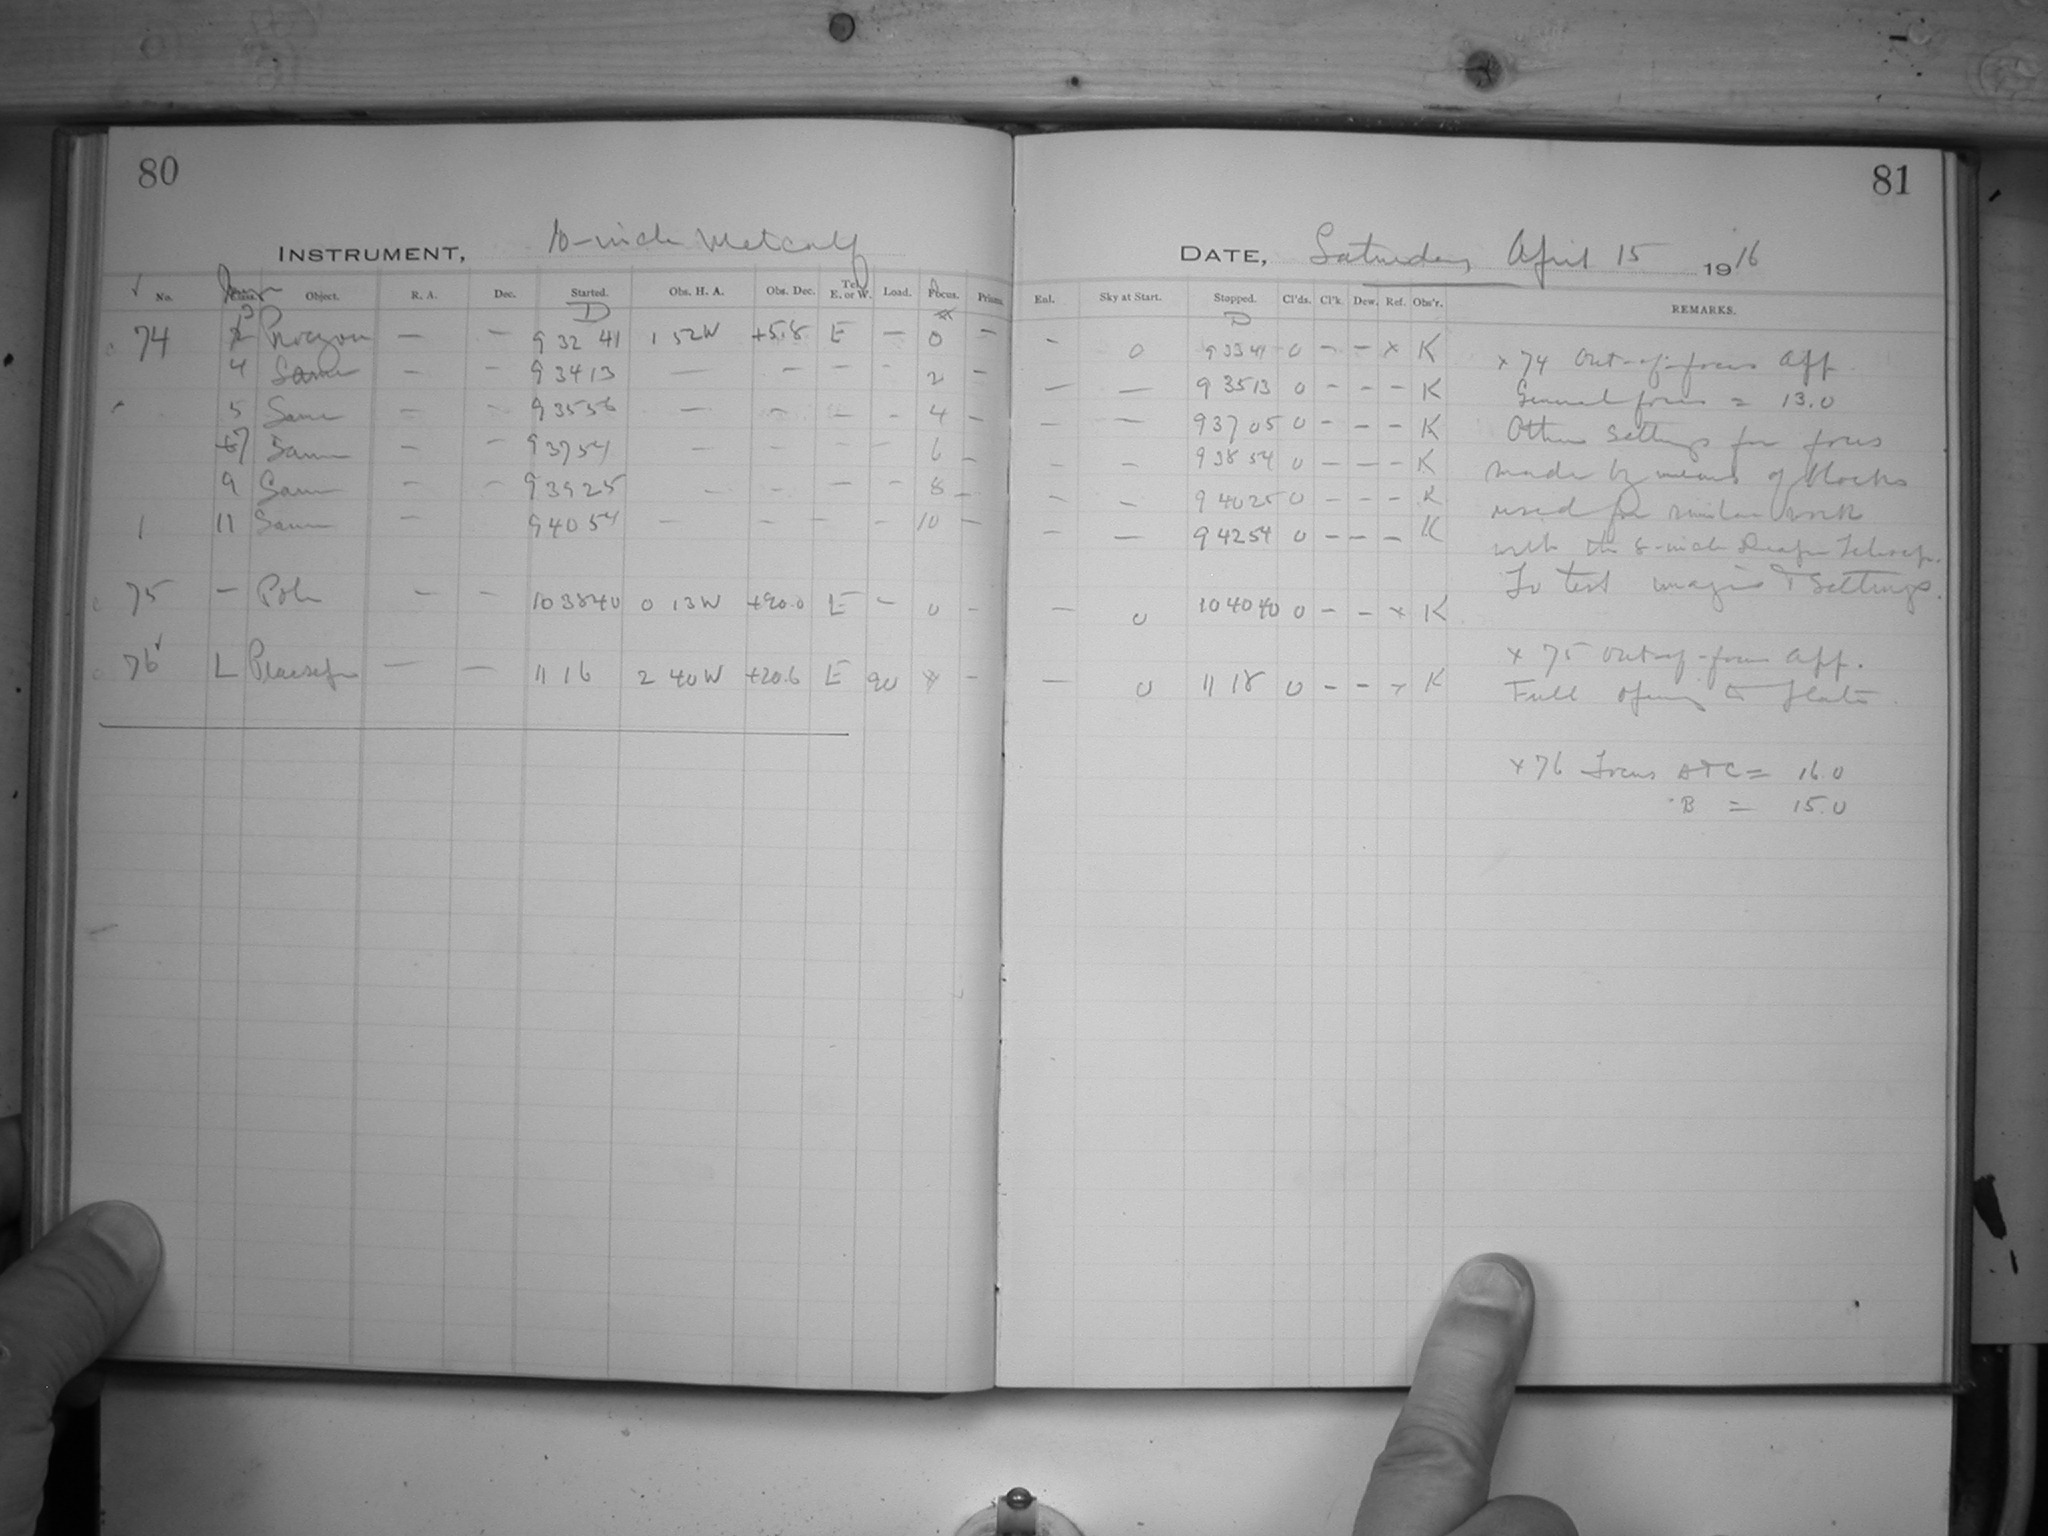 80
INSTRUMENT, 10-inch Metcalf
No. Class. Object. R. A. Dec. Started. Obs. H. A. Obs. Dec. Tel. E. or W. Load. Focus. Prism.
D
74 Procyon — — 9 32 41 1 52W +5.8 E — 0 —
4 Same — — 9 34 13 — — — - 2 —
5 Same — — 9 35 56 — — — - 4 —
7 Same — — 9 37 54 — — — - 6 —
9 Same — — 9 39 25 — — — - 8 —
1 11 Same — 9 40 54 — — — - 10 —
75 — Pole — — 10 38 40 0 13W +90.0 E — 0 —
76 L Praesepe — — 11 16 2 40W +20.6 E 90 * -
81
DATE, Saturday April 15 1916
Enl. Sky at Start. Stopped. Cl'ds. Cl'k. Dew. Ref. Obs'r. REMARKS.
D
- 0 9 33 41 0 - - x K
— — 9 35 13 0 - - - K
— — 9 37 05 0 - - - K
- - 9 38 54 0 - - - K
- - 9 40 25 0 - - - K
— — 9 42 54 0 - - - K
— 0 10 40 40 0 - - x K
— 0 11 18 0 - - x K
x 74 Out-of-focus app.
General focus = 13.0
Other settings for focus
made by means of blocks
used for similar work
with the 8-inch Draper Telescope.
To test images & settings.
x 75 out-of-focus app.
Full opening & plate.
x 76 Focus A+C = 16.0
B = 15.0